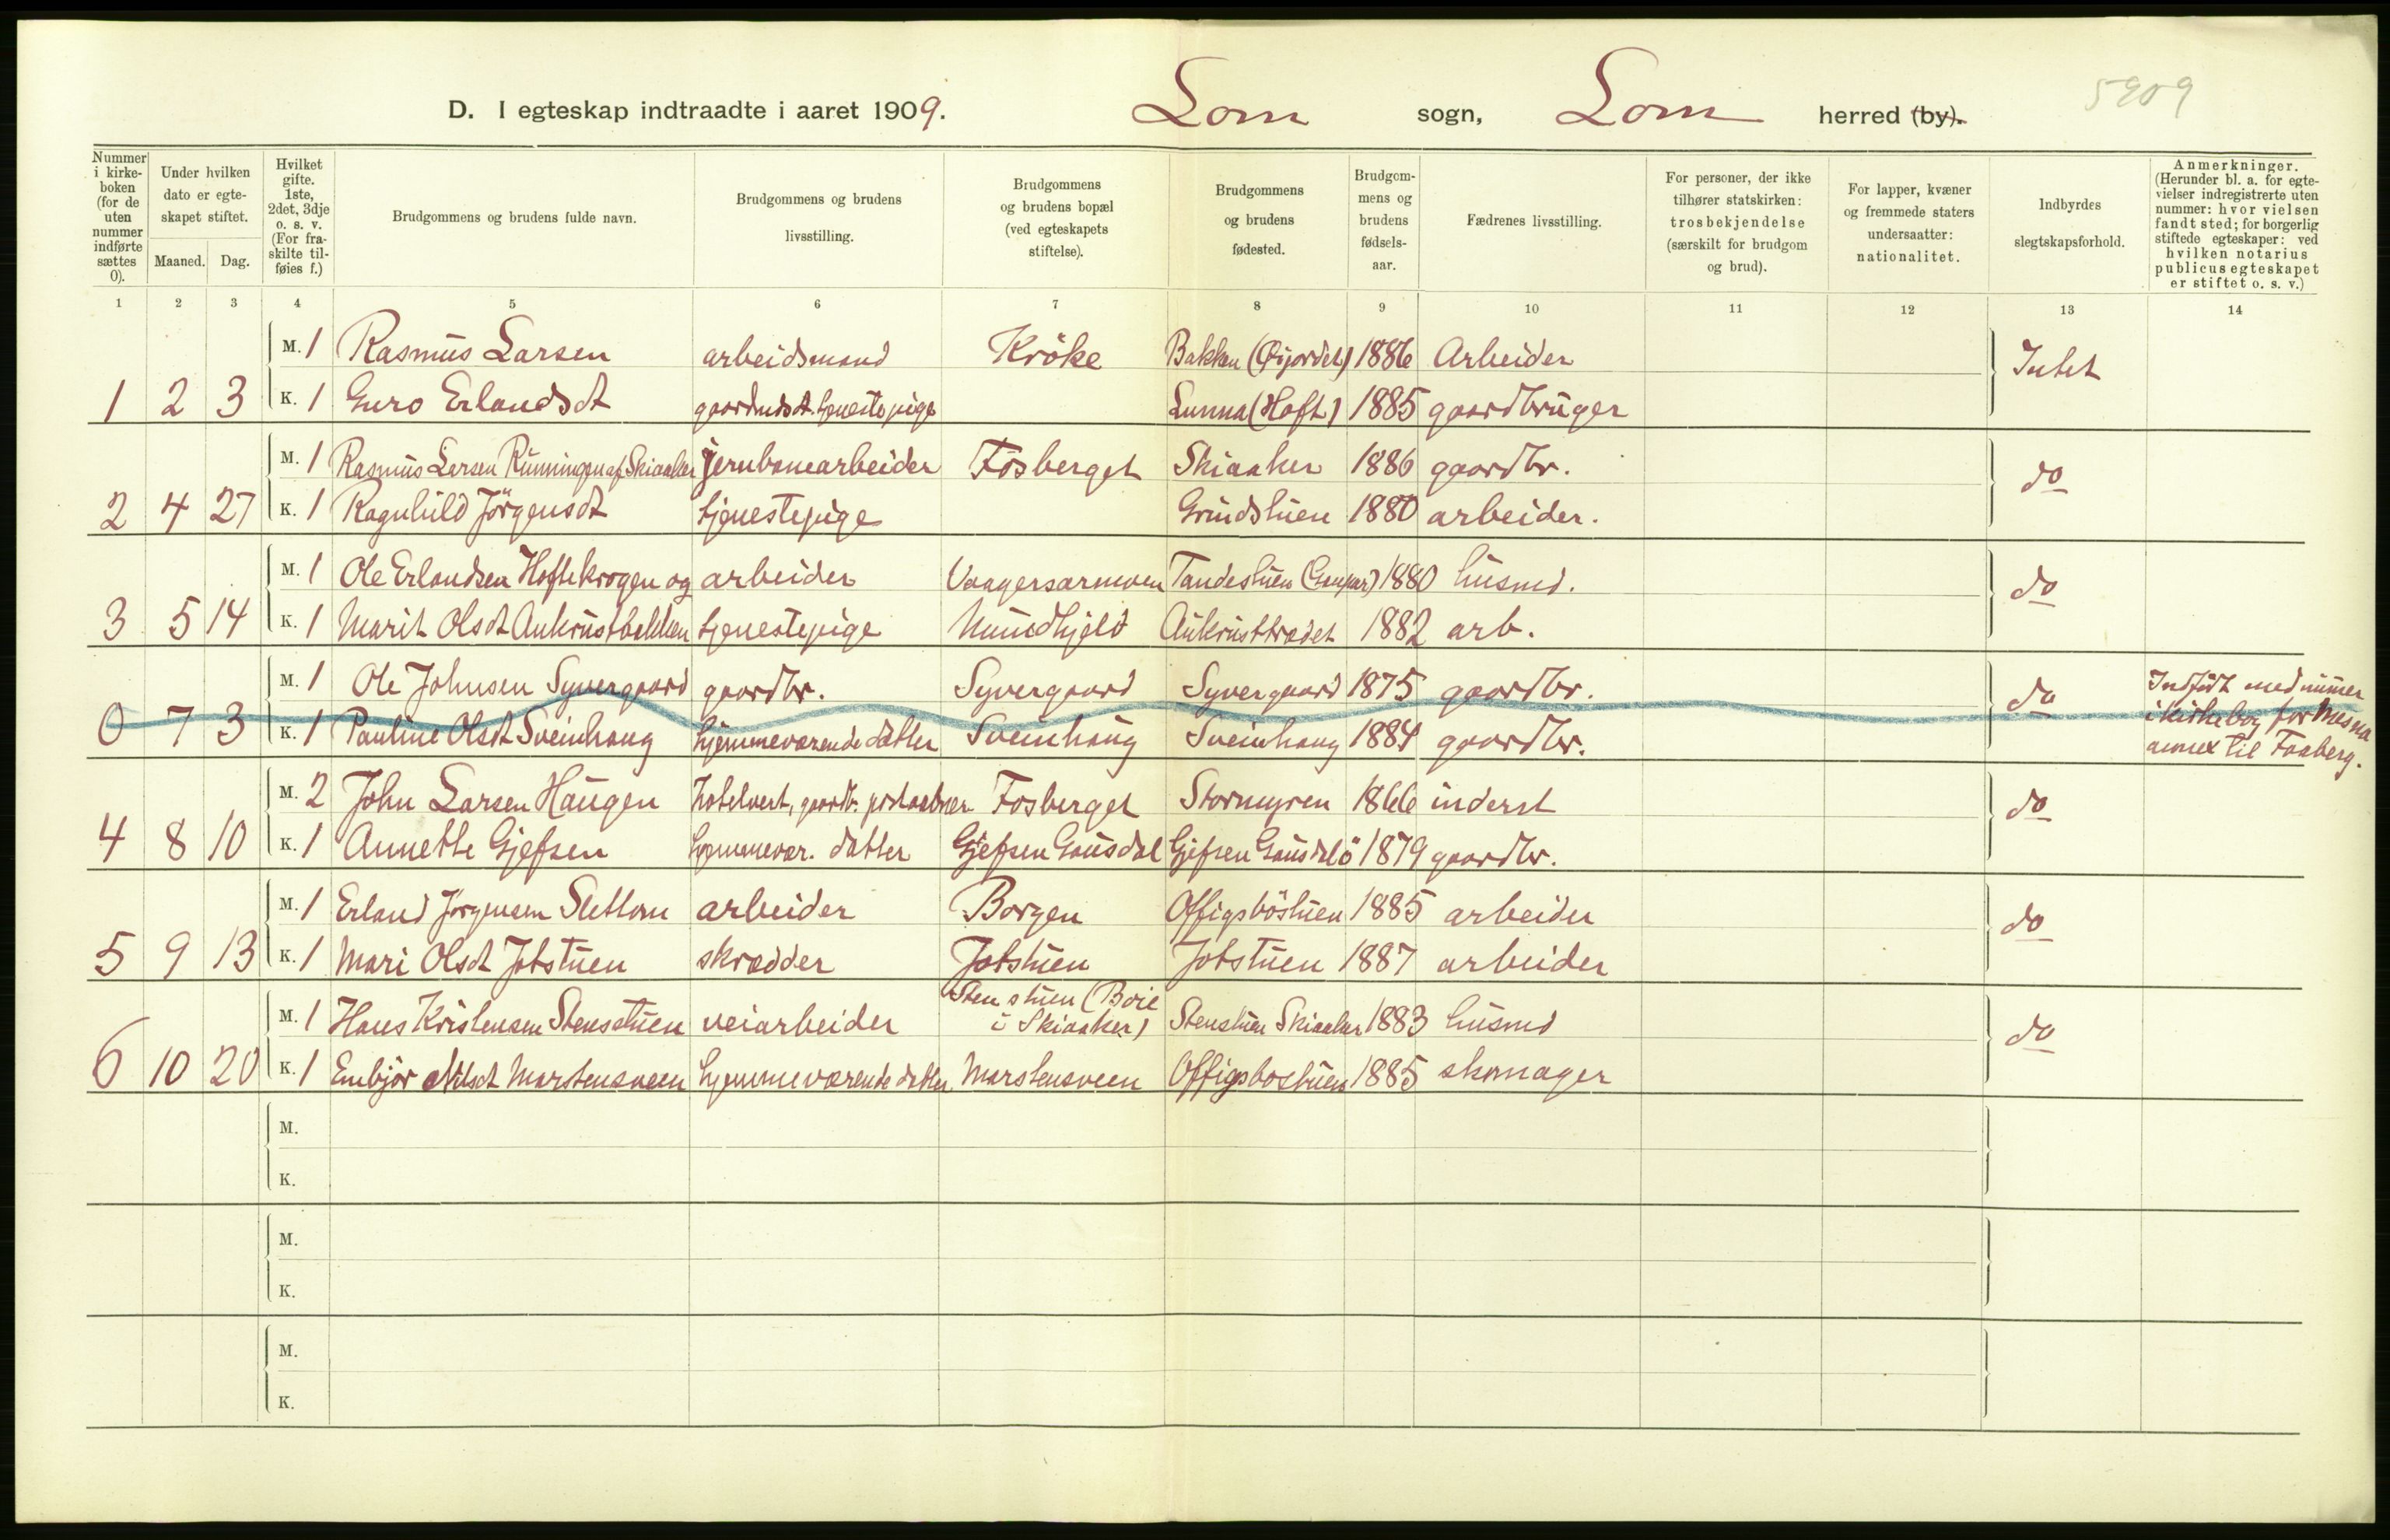 5909
D. I egteskap indtraadte i aaret 1909. Lom sogn, Lom herred (by).
Nummer i kirke-boken (for de uten nummer indførte sættes 0).
Under hvilken dato er egte-skapet stiftet.
Maaned. Dag.
Hvilket gifte. 1ste, 2det, 3dje o. s. v. (For fra-skilte til-føies f.)
Brudgommens og brudens fulde navn.
Brudgommens og brudens livsstilling.
Brudgommens og brudens bopæl (ved egteskapets stiftelse).
Brudgommens og brudens fødested.
Brudgom-mens og brudens fødsels-aar.
Fædrenes livsstilling.
For personer, der ikke tilhører statskirken: trosbekjendelse (særskilt for brudgom og brud).
For lapper, kvæner og fremmede staters undersaatter: nationalitet.
Indbyrdes slegtskapsforhold.
Anmerkninger. (Herunder bl. a. for egte-vielser indregistrerte uten nummer: hvor vielsen fandt sted; for borgerlig stiftede egteskaper: ved hvilken notarius publicus egteskapet er stiftet o. s. v.)
1 2 3 4 5 6 7 8 9 10 11 12 13 14
M. 1 Rasmus Larsen arbeidsmand Kröke Bakken 1886 Arbeider Intet
1 2 3 K. 1 Guro Erlandsdt tjenestepige Lunna (Hoft) 1885 gaardbruger
M. 1 Rasmus Larsen Runningen af Skiaaker jernbanearbeider Fosberget Skiaaker 1886 gaardbr. do
2 4 27 K. 1 Ragnhild Jörgensdt tjenestepige Grindstuen 1880 arbeider.
M. 1 Ole Erlandsen Hoftekrogen og arbeider Vaagersarmoen Tandestuen 1880 husmd. do
3 5 14 K. 1 Marit Olsdt Aukrustbakken tjenestepige Aukrusttrædet 1882 arb.
M. 1 Ole Johnsen Syvergaard gaardbr. Syvergaard Syvergaard 1875 gaardbr. do Indført med numer
0 7 3 K. 1 Pauline Olsdt Sveinhaug hjemmeværende datter Sveinhaug Sveinhaug 1884 gaardbr. i kirkebog for Mesna
annex til Faaberg.
M. 2 John Larsen Haugen Hotelvert, gaardbr. postaabner Fosberget Stormyren 1866 inderst do
4 8 10 K. 1 Annette Gjefsen hjemmevær. datter Gjefsen Gausdal Gjefsen 1879 gaardbr.
M. 1 Erland Jörgensen Slettom arbeider Borgen Offigsböstuen 1885 arbeider do
5 9 13 K. 1 Mari Olsdt Jotstuen skrædder Jotstuen Jotstuen 1887 arbeider
M. 1 Hans Kristensen Stenstuen veiarbeider Stenstuen (Boie i Skiaaker) Stenstuen Skiaaker 1883 husmd do
6 10 20 K. 1 Embjör Nilsdt Marstensveen hjemmeværende datter Marstensveen Offigsbostuen 1885 skomager
M.
K.
M.
K.
M.
K.